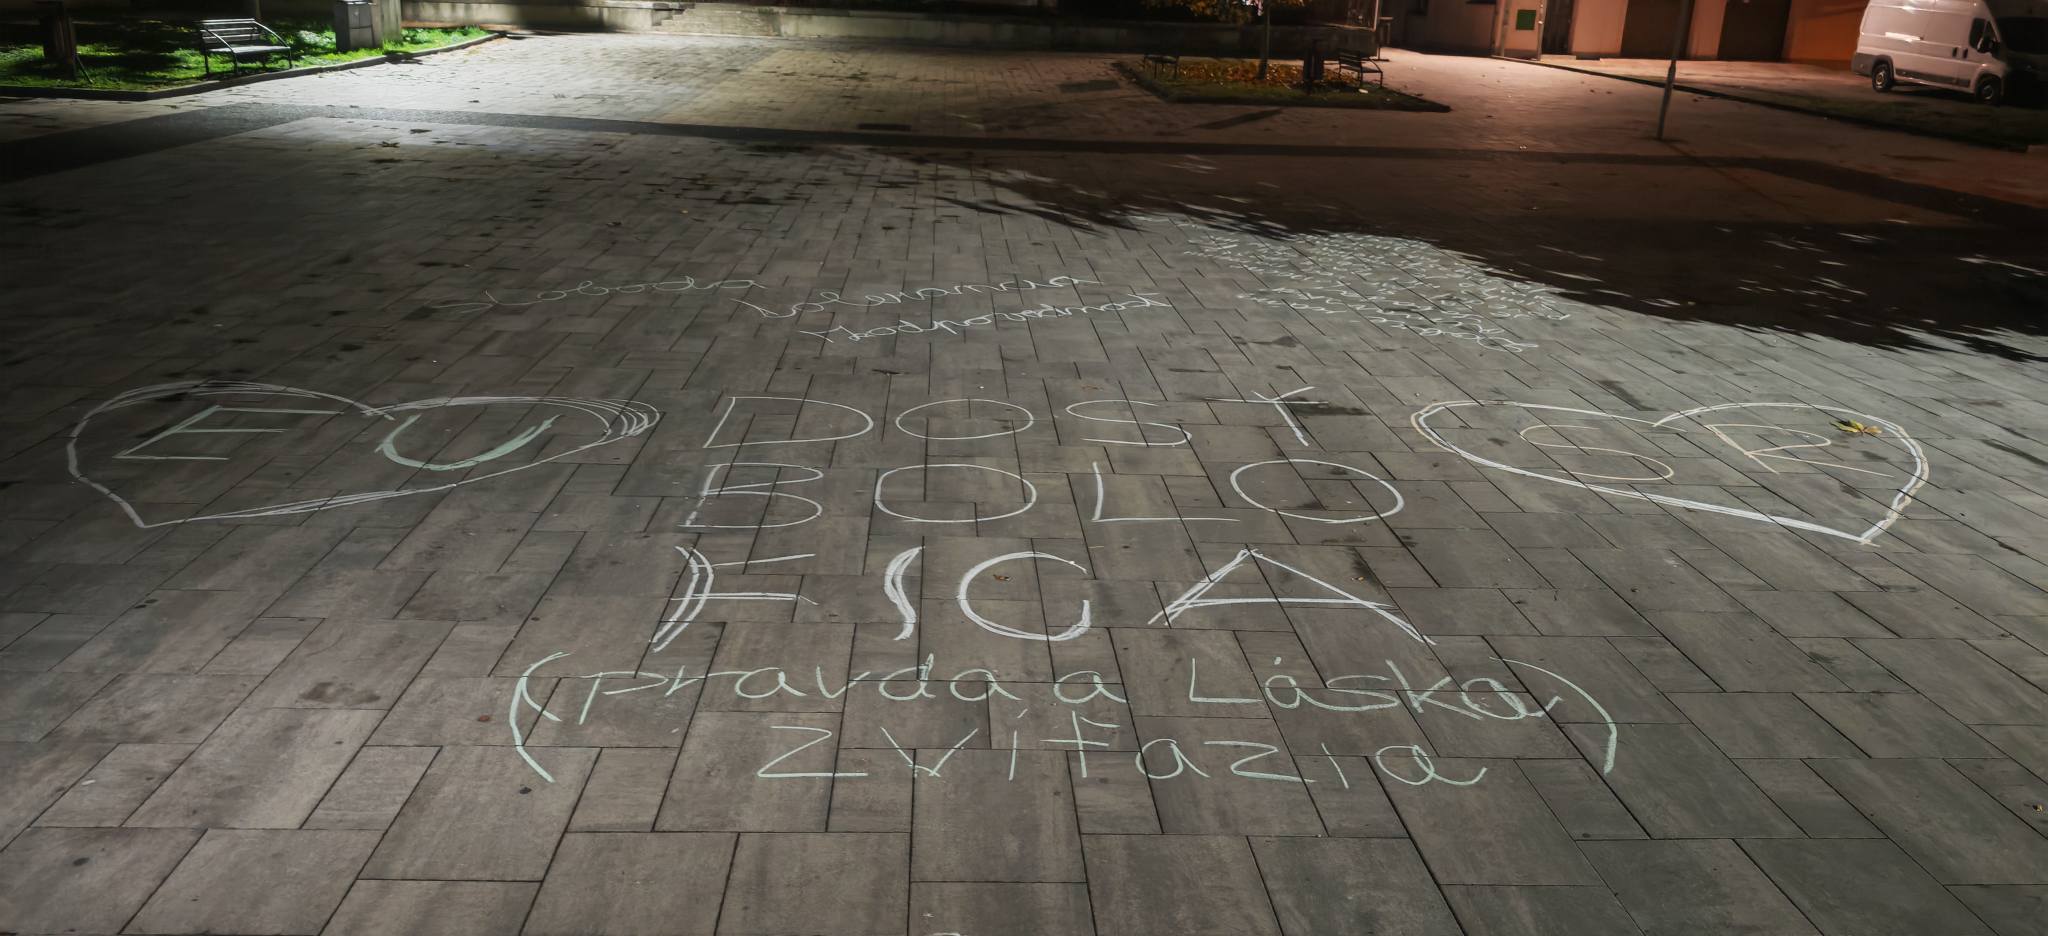 sloboda
tolerancia
zodpovednosť
EU
DOSŤ
BOLO
FICA
SR
(pravda a Láska
zvíťazia)